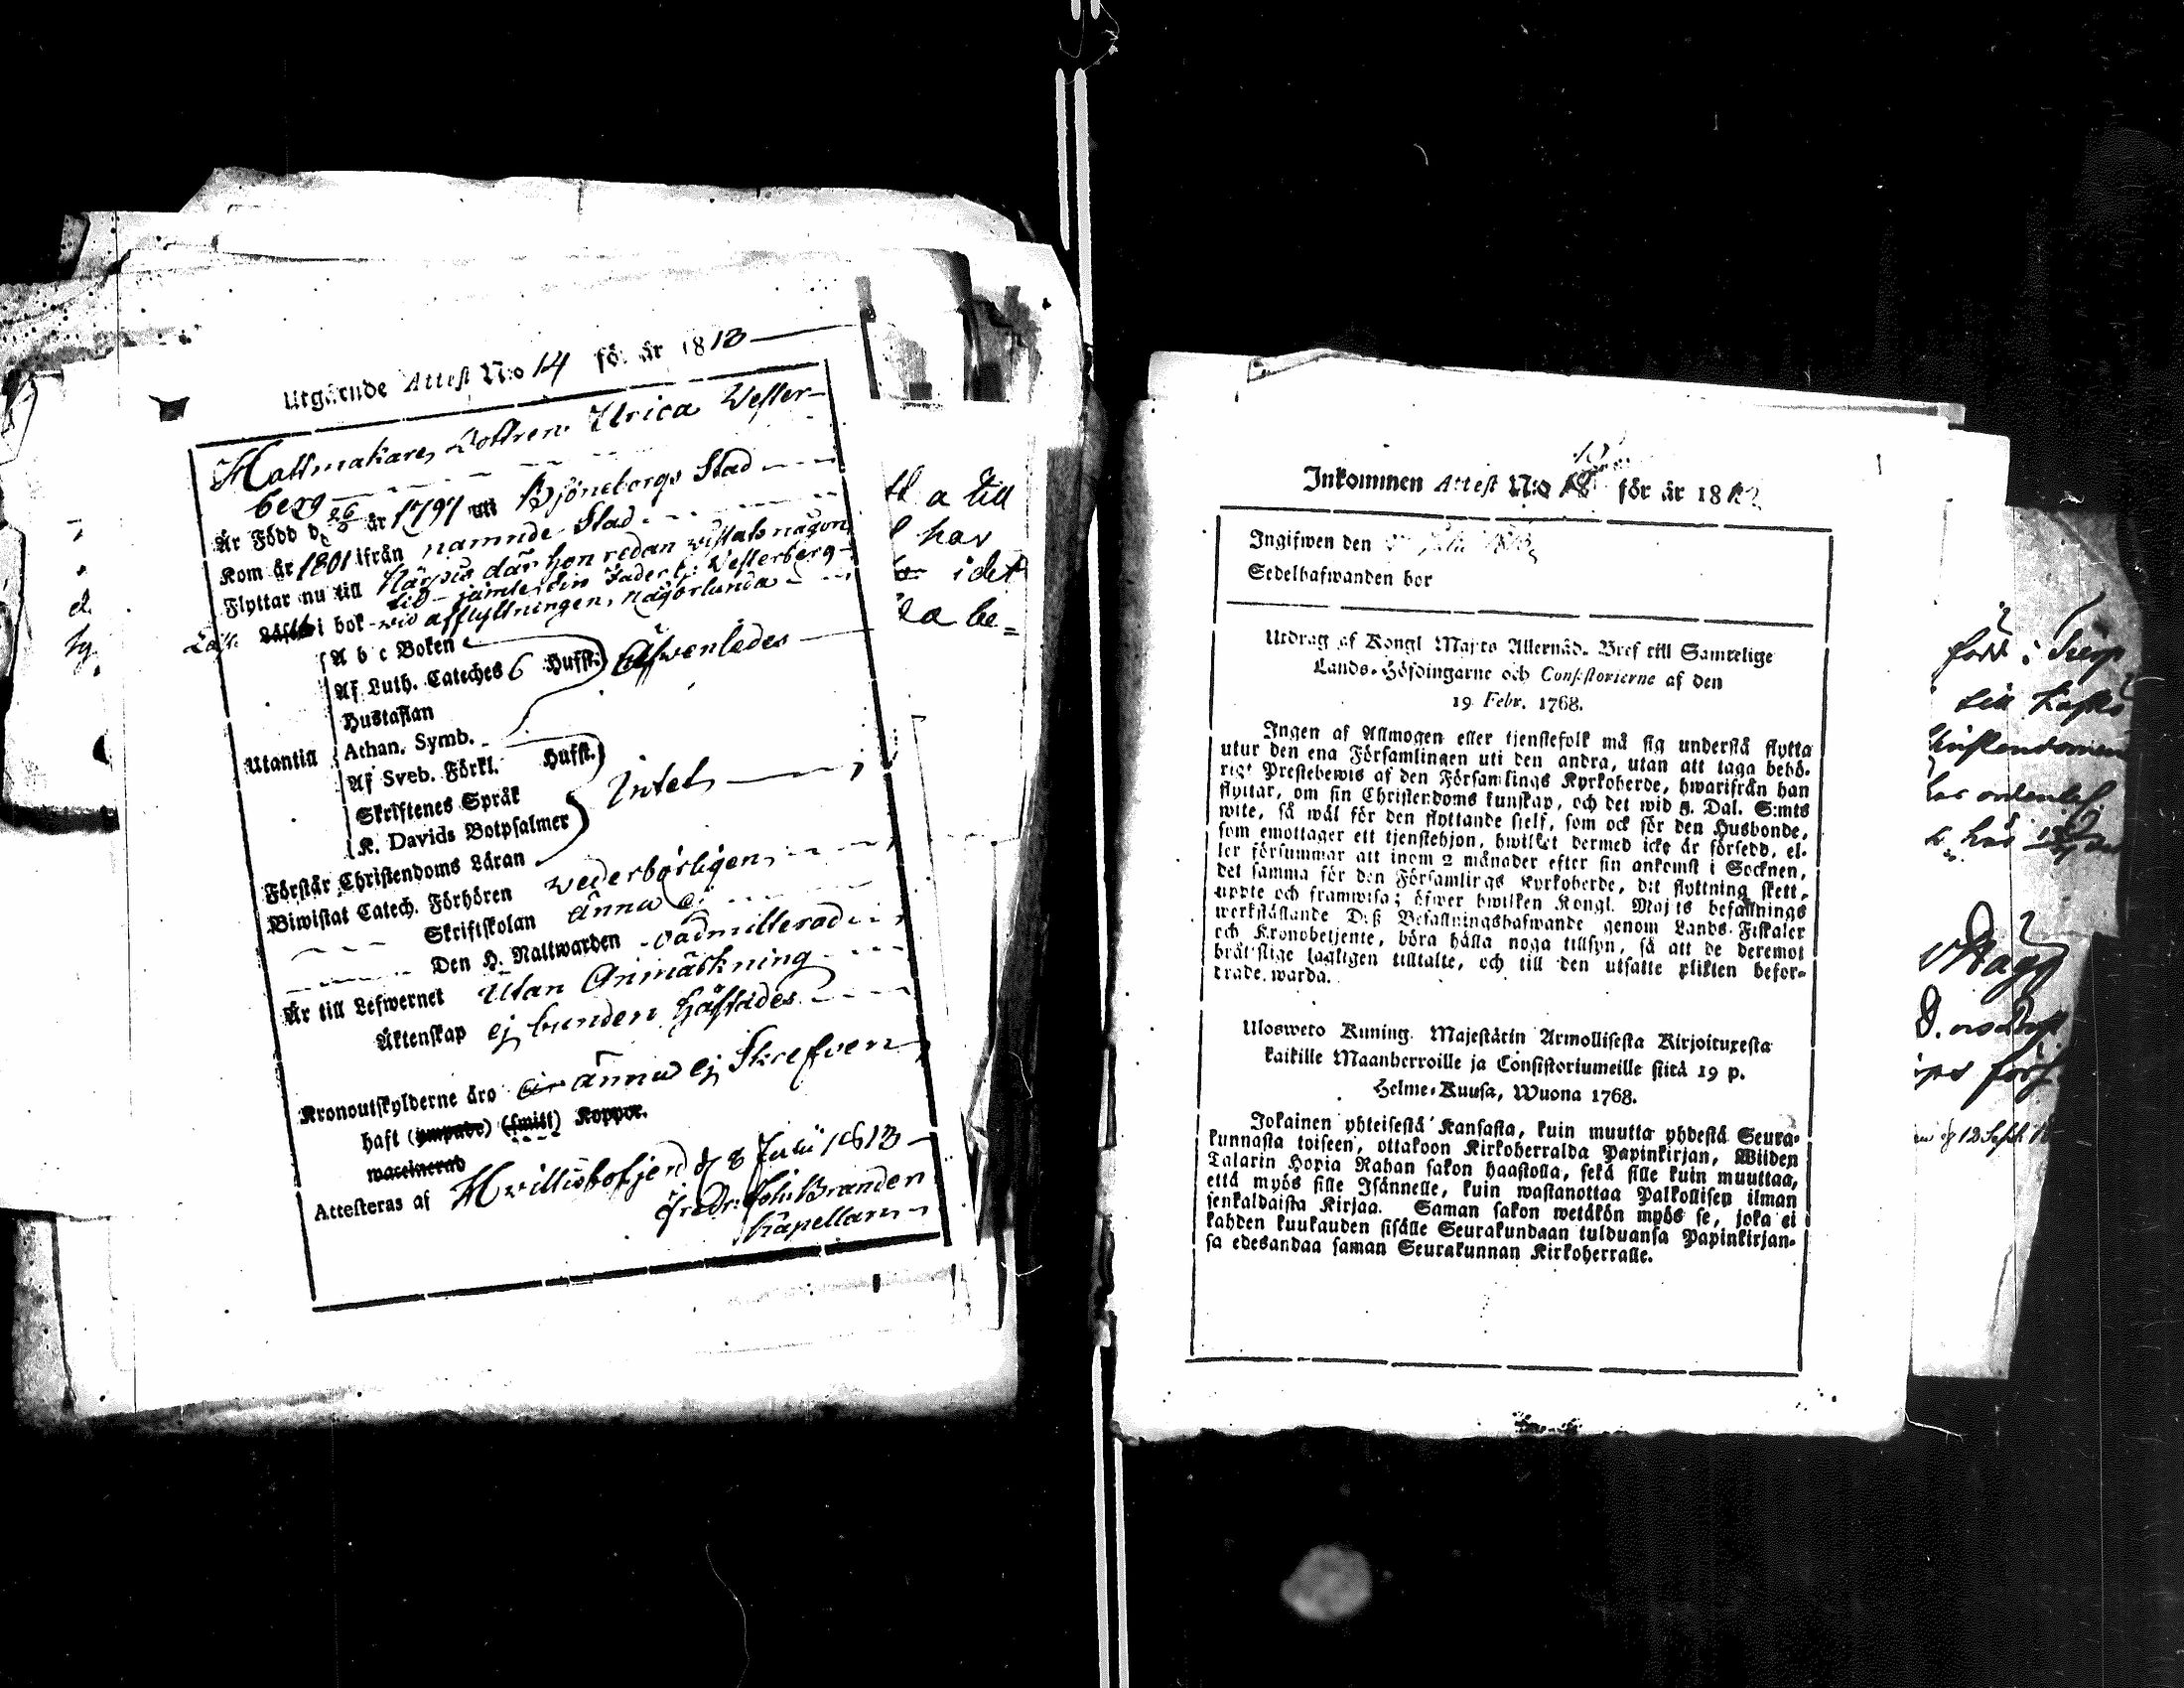 Utgående Attest N:o 14 för år 1813
Hattmakare Dottren Ulrica Wester-
berg
Är Född d. 26 år 1797 uti Björneborgs Stad
Kom år 1801 ifrån namnde Stad
Flyttar nu till där hon redan wistats någon
tid jämte sin Fader Westerberg
Läste i bok wid afflyttningen, någorlunda
Utantill
A b c Boken
Af Luth. Cateches 6 Hufst. Äfwenledes
Hustaflan
Athan. Symb.
Af Sveb. Förkl. Hufst.
Skriftenes Språk Intet
K. Davids Botpsalmer
Förstår Christendoms Läran
Biwistat Catech. Förhören wederbörligen
Skriftskolan ännu ej
Den H. Nattwarden oadmitterad
Är till Lefwernet Utan Anmärkning
Äktenskap ej bunden häftades
Kronoutskylderne äro ännu ej Skrefven
haft (ympade) (smitt) Koppor.
waccinerad
Attesteras af Hvittisbofjerd d. 8 Julii 1813
Fredr. Joh. Branden
Kapellan
tl a till
har
i det
la be=
Inkommen Attest N:o 18 för år 181
Ingifwen den
Sedelhafwanden bor
Utdrag af Kongl Maj:ts Allernåd. Bref till Samtelige
Lands-Höfdingarne och Consistorierne af den
19 Febr. 1768.
Ingen af Allmogen eller tjenstefolk må sig understå flytta
utur den ena Församlingen uti den andra, utan att taga behö-
rigt Prestebewis af den Församlings Kyrkoherde, hwarifrån han
flyttar, om sin Christendoms kunskap, och det wid 5. Dal. S:mts
wite, så wäl för den flyttande sjelf, som ock för den Husbonde,
som emottager ett tjenstehjon, hwilket dermed icke är försedd, el-
ler försummar att inom 2 månader efter sin ankomst i Socknen,
det samma för den Församlings Kyrkoherde, dit flyttning skett,
uppte och framwisa; öfwer hwilken Kongl. Maj:ts befallnings
werkställande Deß Befallningshafwande genom Lands-Fiskaler
och Kronobetjente, böra hålla noga tillsyn, så att de deremot
brätslige lagligen tilltalte, och till den utsatte plikten befor-
drade warda.
Ulosweto Kuning. Majestätin Armollisesta Kirjoituxesta
kaikille Maanherroille ja Consistoriumeille siitä 19 p.
Helme-Kuusa, Wuona 1768.
Jokainen yhteisestä Kansasta, kuin muutta yhdestä Seura-
kunnasta toiseen, ottakoon Kirkoherralda Papinkirjan, Wiiden
Talarin Hopia Rahan sakon haastolla, sekä sille kuin muuttaa,
että myös sille Isännelle, kuin wastanottaa Palkollisen ilman
senkaldaista Kirjaa. Saman sakon wetäkön myös se, joka ei
kahden kuukauden sisälle Seurakundaan tulduansa Papinkirjan-
sa edesandaa saman Seurakunnan Kirkoherralle.
född i
till